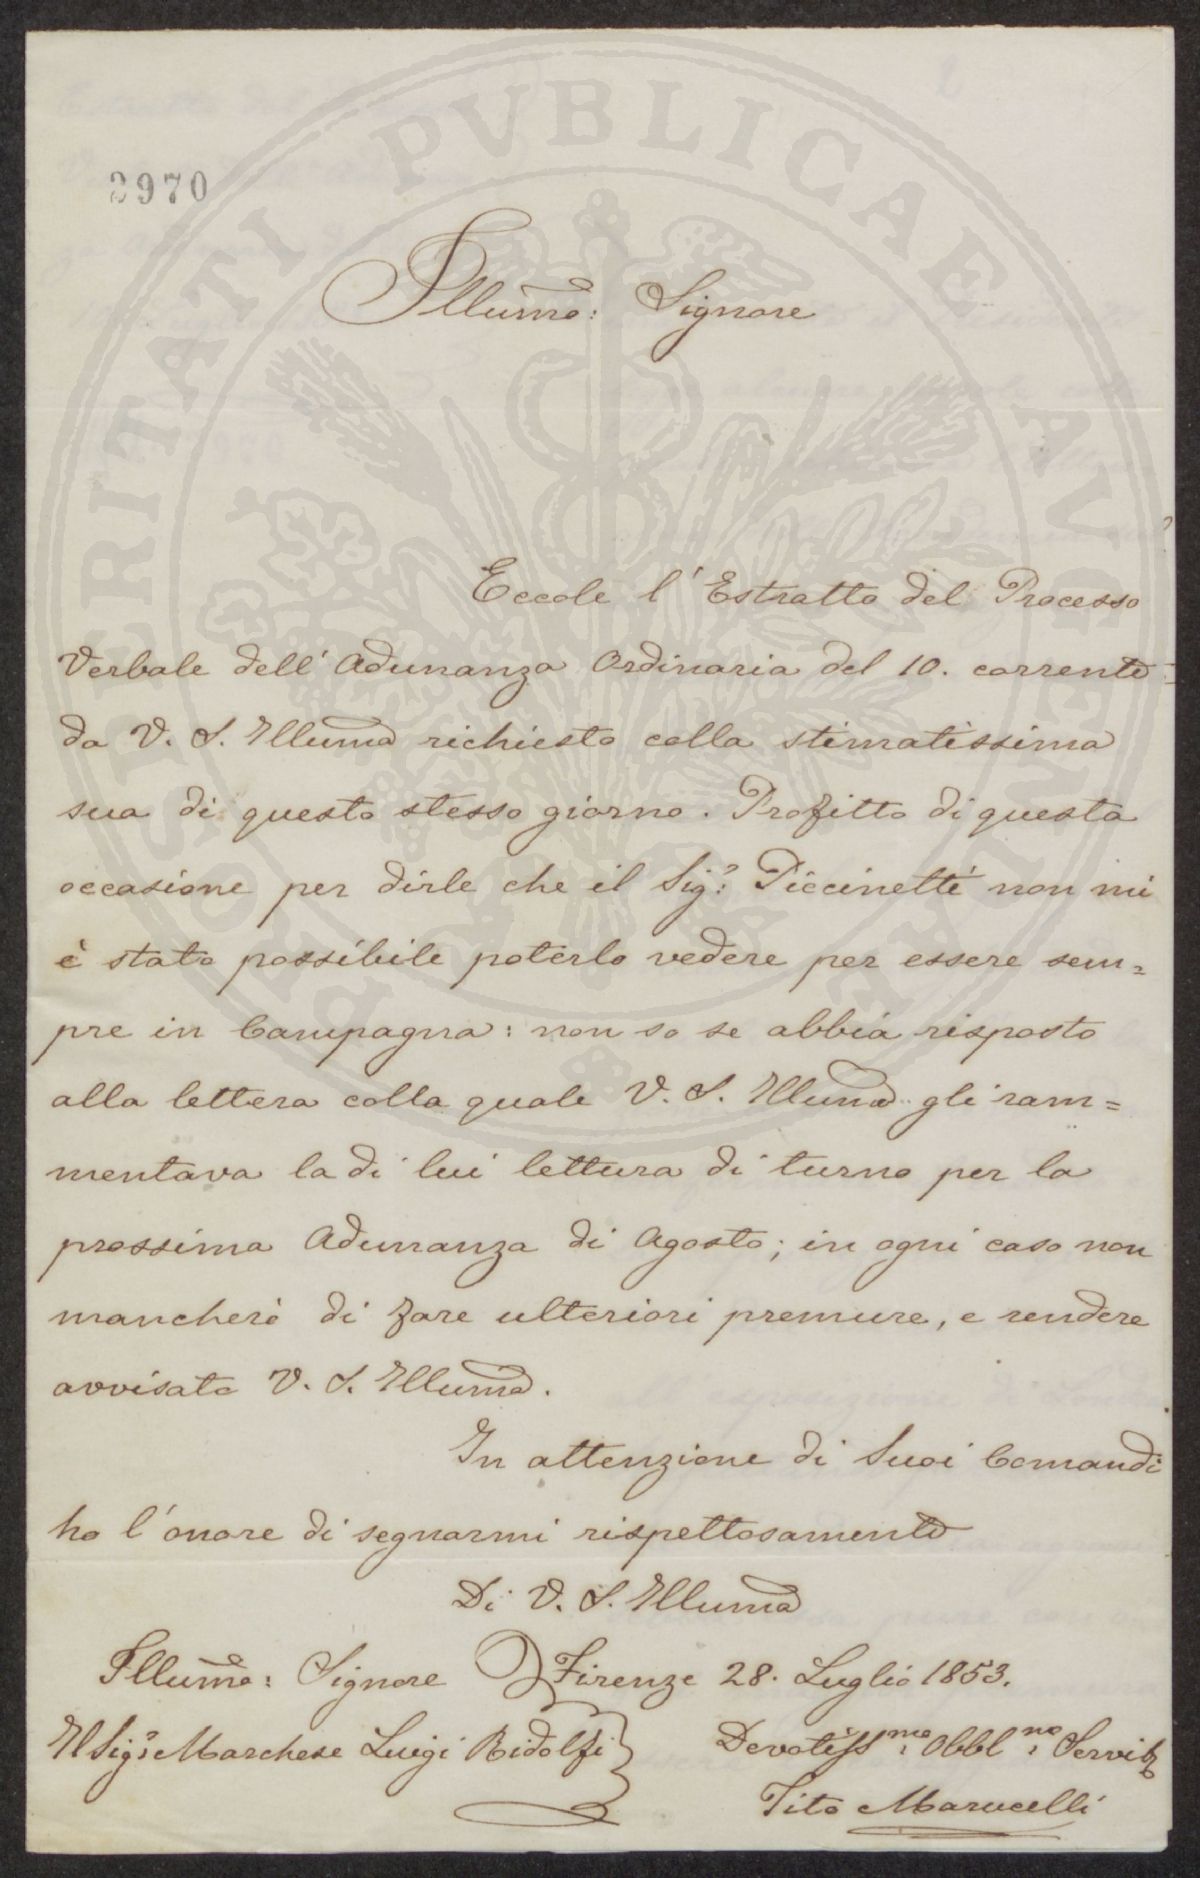 PROSPERITATI PVBLICAE AVGENDAE
2970
Illumo: Signore
Eccole l'Estratto del Processo
Verbale dell'Adunanza Ordinaria del 10. corrente
da V. S. Illuma richiesto colla stimatissima
sua di questo stesso giorno. Profitto di questa
occasione per dirle che il Sigr: Piccinetti non mi
è stato possibile poterlo vedere per essere sem=
pre in Campagna: non so se abbia risposto
alla lettera colla quale V. S. Illuma gli ram=
mentava la di lui lettura di turno per la
prossima Adunanza di Agosto; in ogni caso non
mancherò di fare ulteriori premure, e rendere
avvisata V. S. Illuma.
In attenzione di Suoi Comandi
ho l'onore di segnarmi rispettosamente
Di V. S. Illuma
Illumo: Signore
Il Sigr: Marchese Luigi Ridolfi
Firenze 28. Luglio 1853.
Devotissmo: Obblmo: Servitr
Tito Marucelli